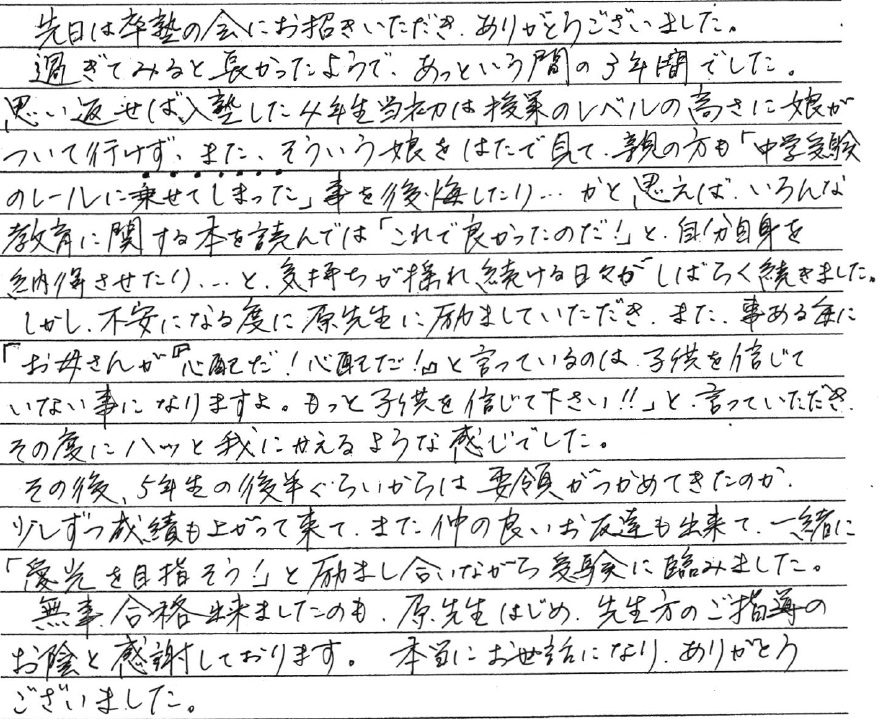 先日は卒塾の会にお招きいただき、ありがとうございました。
過ぎてみると長かったようで、あっという間の3年間でした。
思い返せば、入塾した4年生当初は授業のレベルの高さに娘が
ついて行けず、また、そういう娘をはたで見て、親の方も「中学受験
のレールに乗せてしまった」事を後悔したり…かと思えば、いろんな
教育に関する本を読んでは「これで良かったのだ!」と、自分自身を
納得させたり…と、気持ちが揺れ続ける日々がしばらく続きました。
しかし、不安になる度に原先生に励ましていただき、また、事ある毎に
「お母さんが『心配だ!心配だ!』と言っているのは、子供を信じて
いない事になりますよ。もっと子供を信じて下さい!!」と、言っていただき、
その度にハッと我にかえるような感じでした。
その後、5年生の後半ぐらいからは要領がつかめてきたのか、
少しずつ成績も上がって来て、また仲の良いお友達も出来て、一緒に
「愛光を目指そう!」と励まし合いながら受験に臨みました。
無事、合格出来ましたのも、原先生はじめ、先生方のご指導の
お陰と感謝しております。本当にお世話になり、ありがとう
ございました。